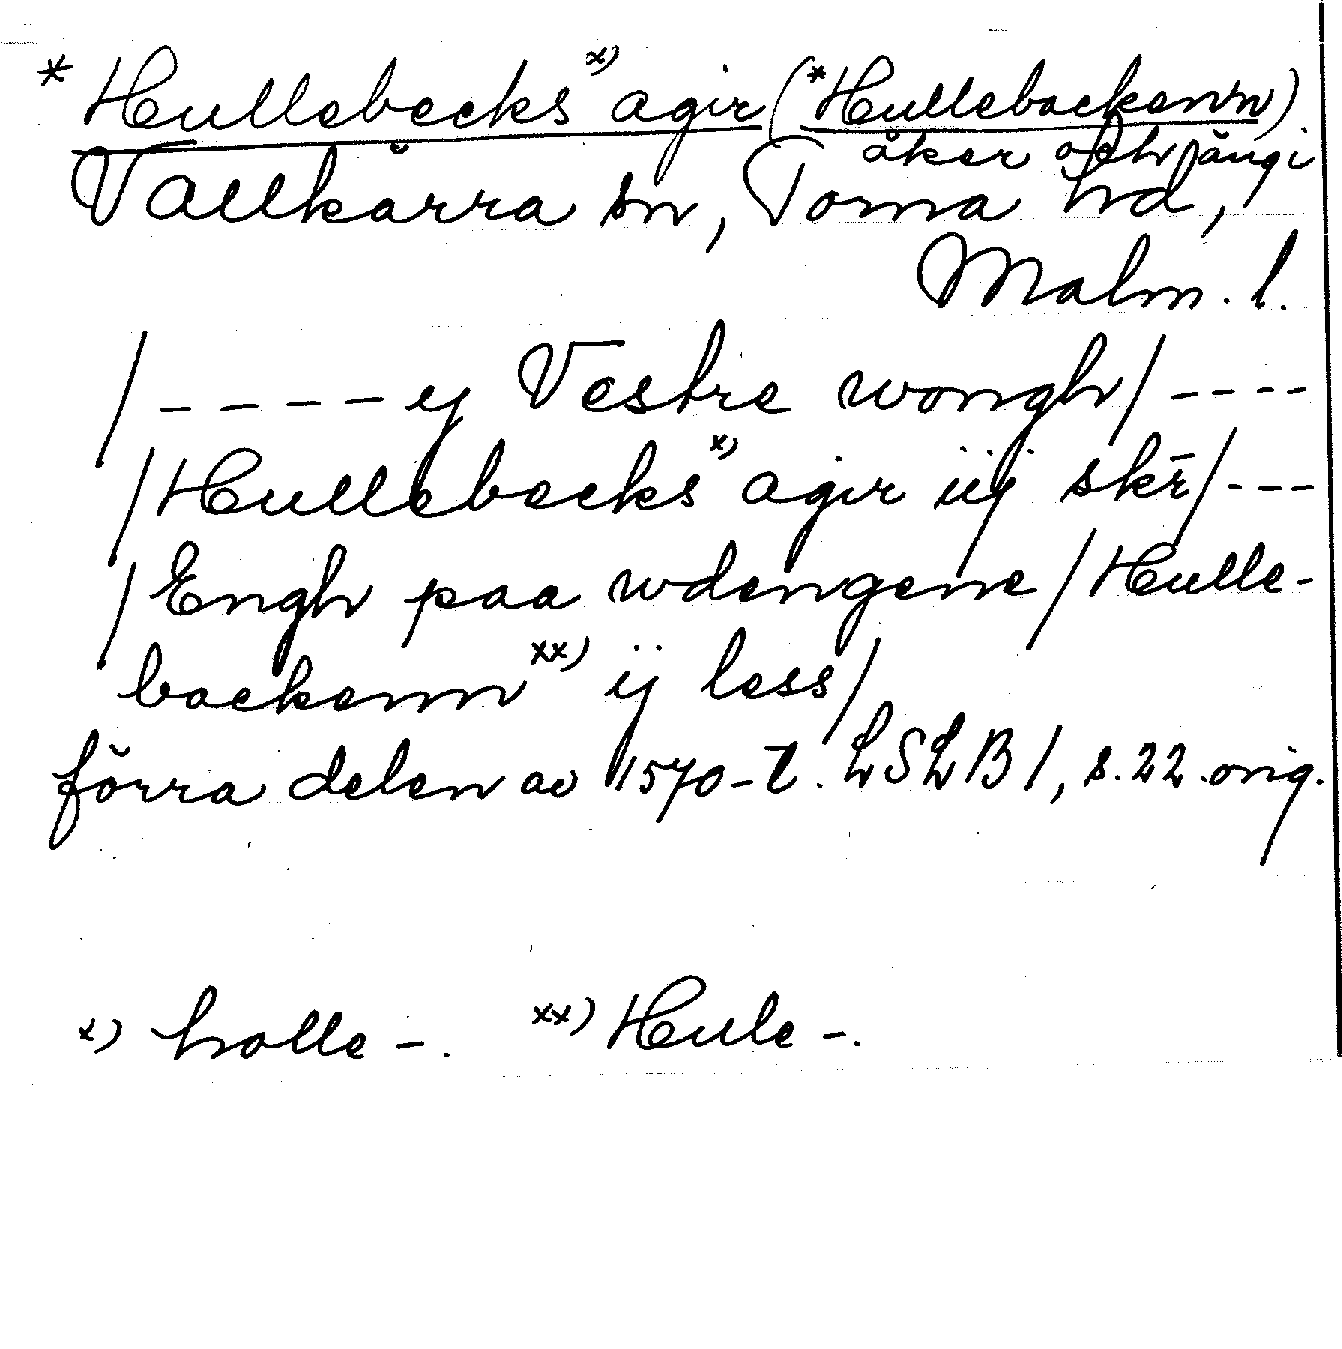 *Hullebecks x) agir (*Hullebackenn)
åker och äng i
Vallkärra sn, Torna hd,
Malm. l.
/ - - - - ij Vestre wongh / - - - -
/ Hullebecks x) agir iij skr̄ / - - -
/ Engh paa wdengene / Hulle-
backenn xx) ij less /
förra delen av 1570-t. LSLB 1, s. 22. orig.
x) holle -. xx) Hule -.